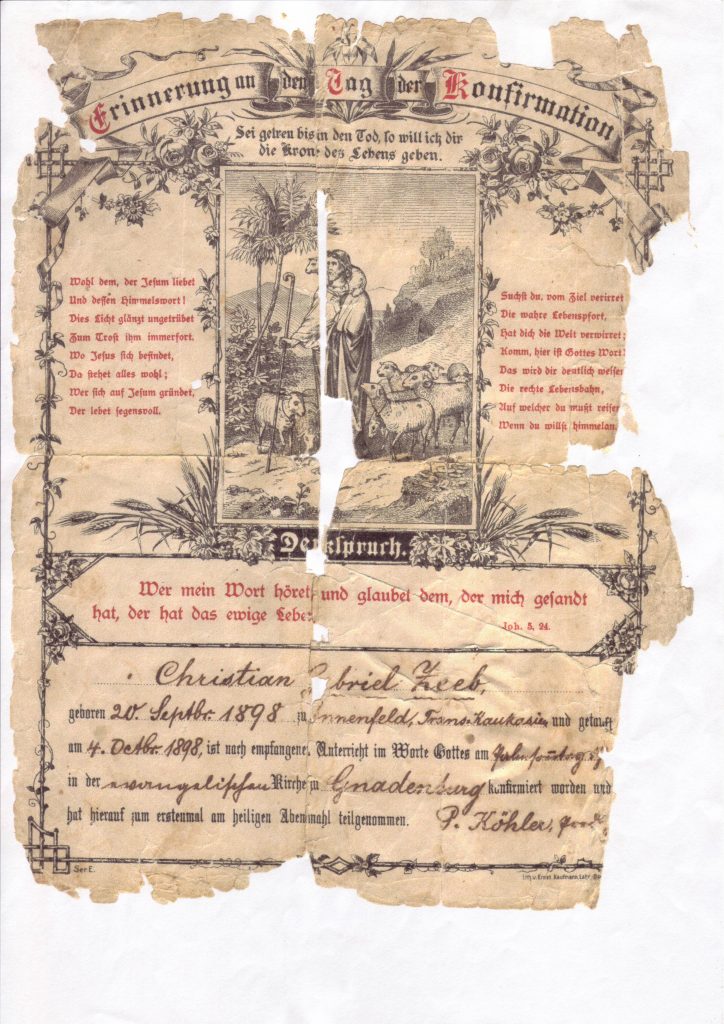 Erinnerung an den Tag der Konfirmation
Sei getreu bis in den Tod, so will ich dir
die Krone des Lebens geben.
Wohl dem, der Jesum liebet
Und dessen Himmelswort!
Dies Licht glänzt ungetrübet
Zum Trost ihm immerfort.
Wo Jesus sich befindet,
Da stehet alles wohl;
Wer sich auf Jesum gründet,
Der lebet segensvoll.
Suchst du, vom Ziel verirret
Die wahre Lebenspfort,
Hat dich die Welt verwirret;
Komm, hier ist Gottes Wort!
Das wird dir deutlich weisen
Die rechte Lebensbahn,
Auf welcher du mußt reisen
Wenn du willst himmelan.
Denkspruch.
Wer mein Wort höret, und glaubet dem, der mich gesandt
hat, der hat das ewige Leben
Joh. 5, 24.
Christian briel Zeeb,
geboren 20. Septbr. 1898 zu nnenfeld, Trans-Kaukasien und getauft
am 4. Octbr. 1898, ist nach empfangenem Unterricht im Worte Gottes am Palmsonntag
in der evangelischen Kirche zu Gnadenburg konfirmiert worden und
hat hierauf zum erstenmal am heiligen Abendmahl teilgenommen. P. Köhler,
Ser E.
Lith. v. Ernst Kaufmann, Lahr,